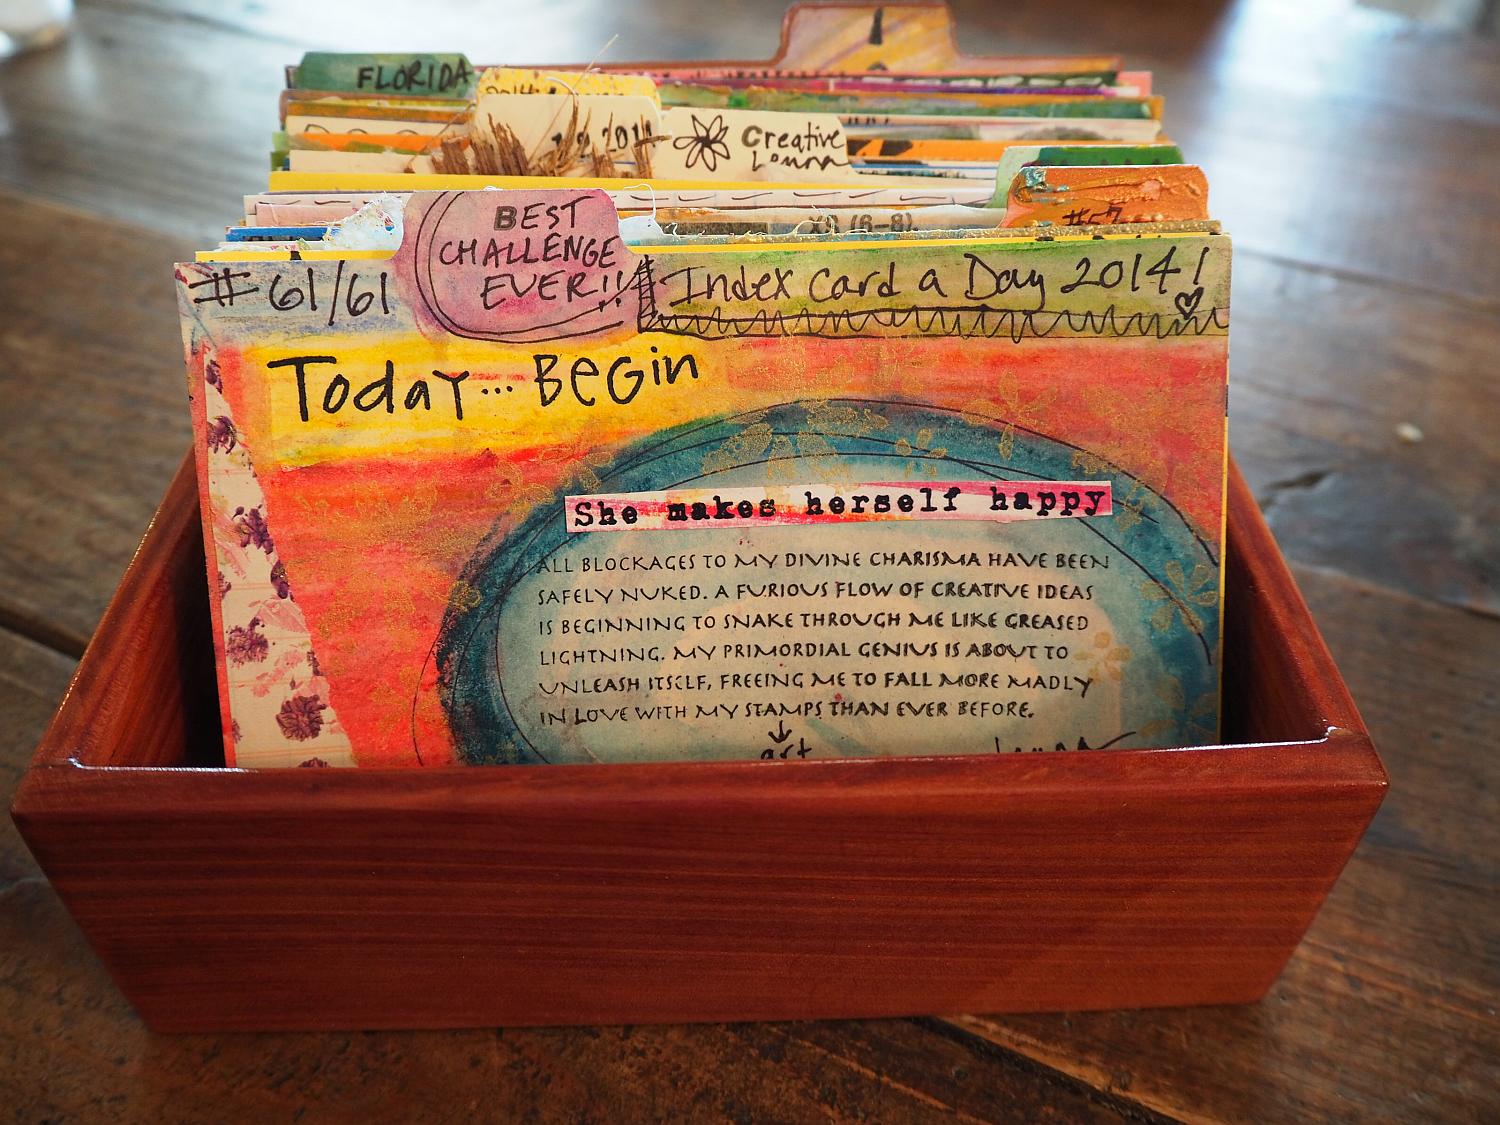 FLORIDA
2014
2 2014
Creative
#57
X8 (6-8).
BEST
CHALLENGE
EVER!!
#61/61
Index Card a Day 2014!
Today... BEGin
She makes herself happy
ALL BLOCKAGES TO MY DIVINE CHARISMA HAVE BEEN
SAFELY NUKED. A FURIOUS FLOW OF CREATIVE IDEAS
IS BEGINNING TO SNAKE THROUGH ME LIKE GREASED
LIGHTNING. MY PRIMORDIAL GENIUS IS ABOUT TO
UNLEASH ITSELF, FREEING ME TO FALL MORE MADLY
IN LOVE WITH MY STAMPS THAN EVER BEFORE.
art